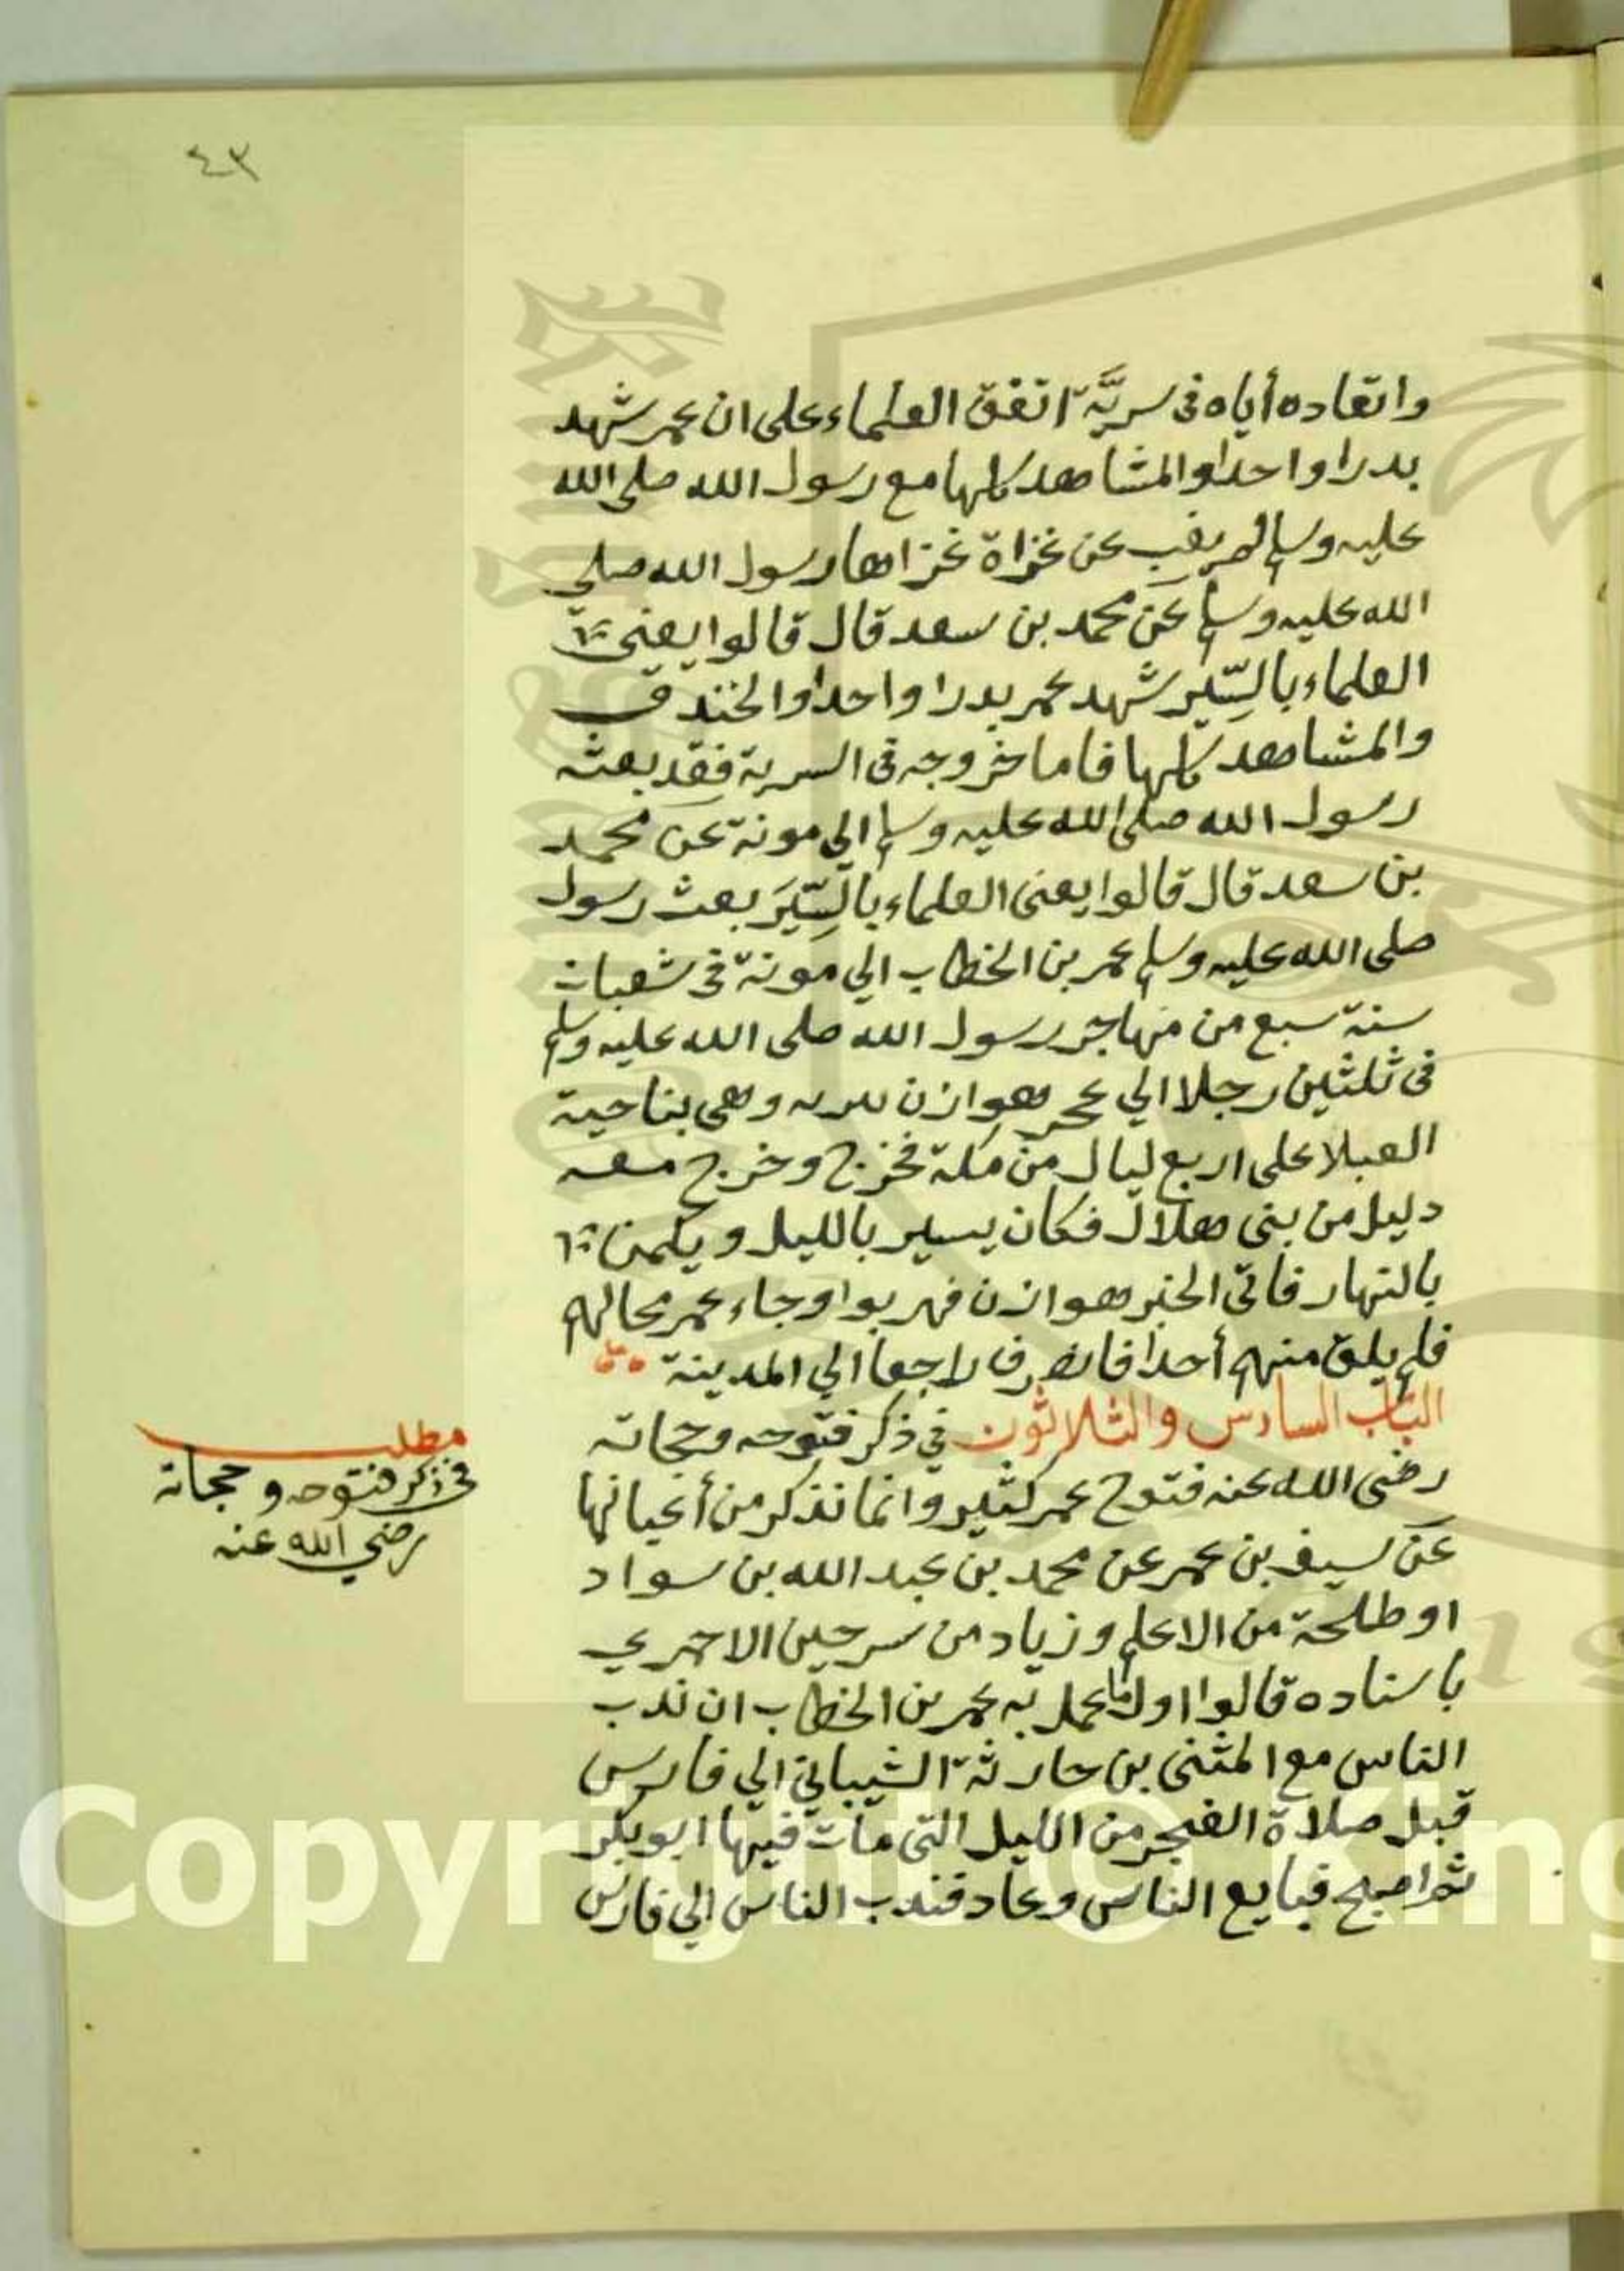 ٤٣
واتعاده أياه فى سريَّة اتفق العلماء على ان عمر شهد
بدرا واحدا والمشاهد كلها مع رسول الله صلى الله
عليه وسلم لم يغب عن غزاة غزاها رسول الله صلى
الله عليه وسلم عن محمد بن سعد قال قالوا يعنى
العلماء بالسِّير شهد عمر بدرا واحدا والخندق
والمشاهد كلها فاما خروجه فى السرية فقد بعثه
رسول الله صلى الله عليه وسلم الي مونة عن محمد
بن سعد قال قالوا يعنى العلماء بالسِّيَر بعث رسول
صلى الله عليه وسلم عمر بن الخطاب الي مونة فى شعبان
سنة سبع من مهاجر رسول الله صلى الله عليه وسلم
فى ثلثين رجلا الي عجر هوازن وهى بناحية
العبلا على اربع ليال من مكة فخرج وخرج معه
دليل من بنى هلال فكان يسير بالليل ويكمن
بالنهار فاتى الخبر هوازن فهربوا وجاء عمر محالهم
فلم يلق منهم أحدا فانصرف راجعا الي المدينة
الباب السادس والثلاثون في ذكر فتوحه وحجاته
رضى الله عنه فتوح عمر كثير وانما نذكر من أعيانها
عن سيف بن عمر عن محمد بن عبد الله بن سواد
او طلحة من الاعلم وزياد من سرحين الاحمري
باسناده قالوا اول ما عمل به عمر بن الخطاب ان ندب
الناس مع المثنى بن حارثة الشيباني الي فارس
قبل صلاة الفجر من الليل التى مات فيها ابو بكر
ثم اصبح فبايع الناس وعاد فندب الناس الي فارس
مطلب
فى ذكر فتوحه وحجاته
رضي الله عنه
Copyright © King